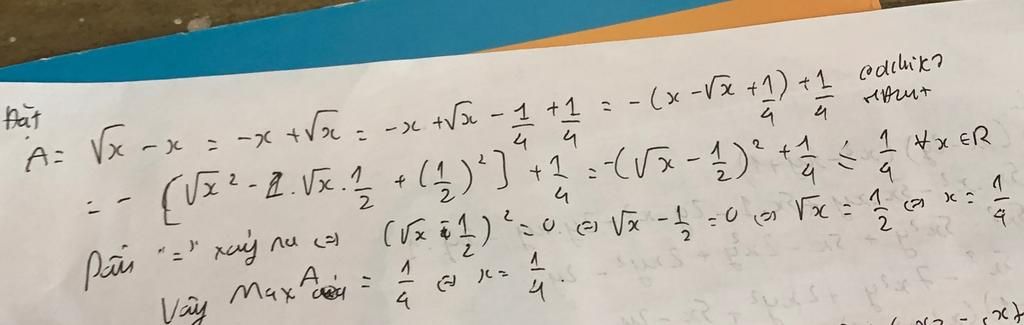 Đặt
A = √x - x = -x + √x = -x + √x - 1/4 + 1/4 = -(x - √x + 1/4) + 1/4
= -[√x² - 2.√x.1/2 + (1/2)²] + 1/4 = -(√x - 1/2)² + 1/4 ≤ 1/4 ∀x ∈ R
Dấu "=" xảy ra ⇔ (√x - 1/2)² = 0 ⇔ √x - 1/2 = 0 ⇔ √x = 1/2 ⇔ x = 1/4
Vậy Max A = 1/4 ⇔ x = 1/4.